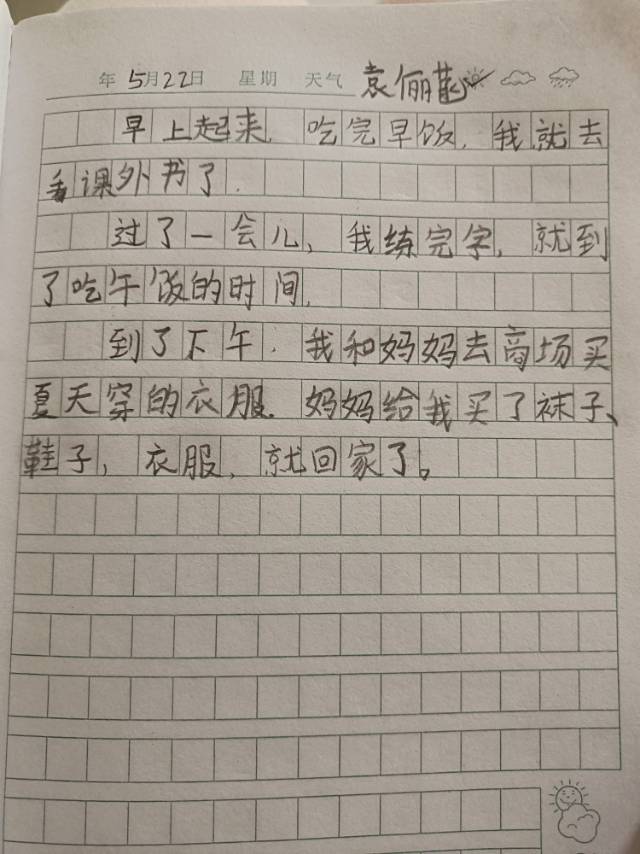 年 5月22日 星期 天气 袁俪菡
早上起来,吃完早饭,我就去
看课外书了.
过了一会儿,我练完字,就到
了吃午饭的时间.
到了下午.我和妈妈去商场买
夏天穿的衣服.妈妈给我买了袜子、
鞋子,衣服,就回家了。